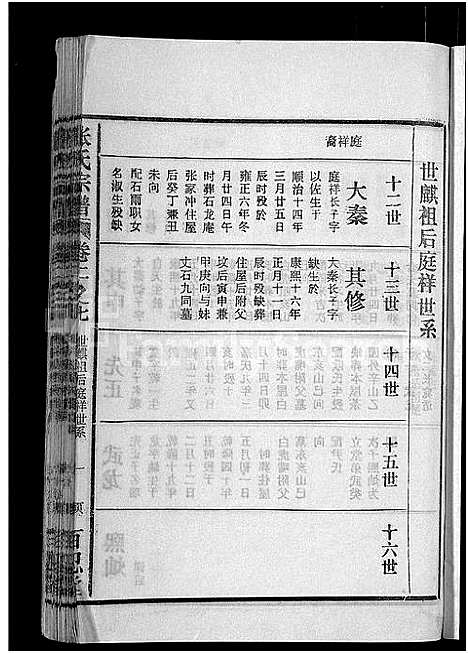 世麒祖后庭祥世系
庭祥裔
十二世
大秦
庭祥长子字
以佐生于
顺治十四年
三月廿五日
辰时殁于
雍正六年冬
月廿四日午
时葬石龙庵
张家冲住屋
后癸丁兼丑
未向
配石雨职女
名淑生殁缺
十三世
其修
大秦长子字
缺生于
康熙十六年
正月十一日
辰时殁缺葬
住屋后附父
坟后寅申兼
甲庚向与妹
丈石九同墓
十四世
十五世
十六世
张氏宗谱
卷二之七
世麒祖后庭祥世系
一页
百忍堂